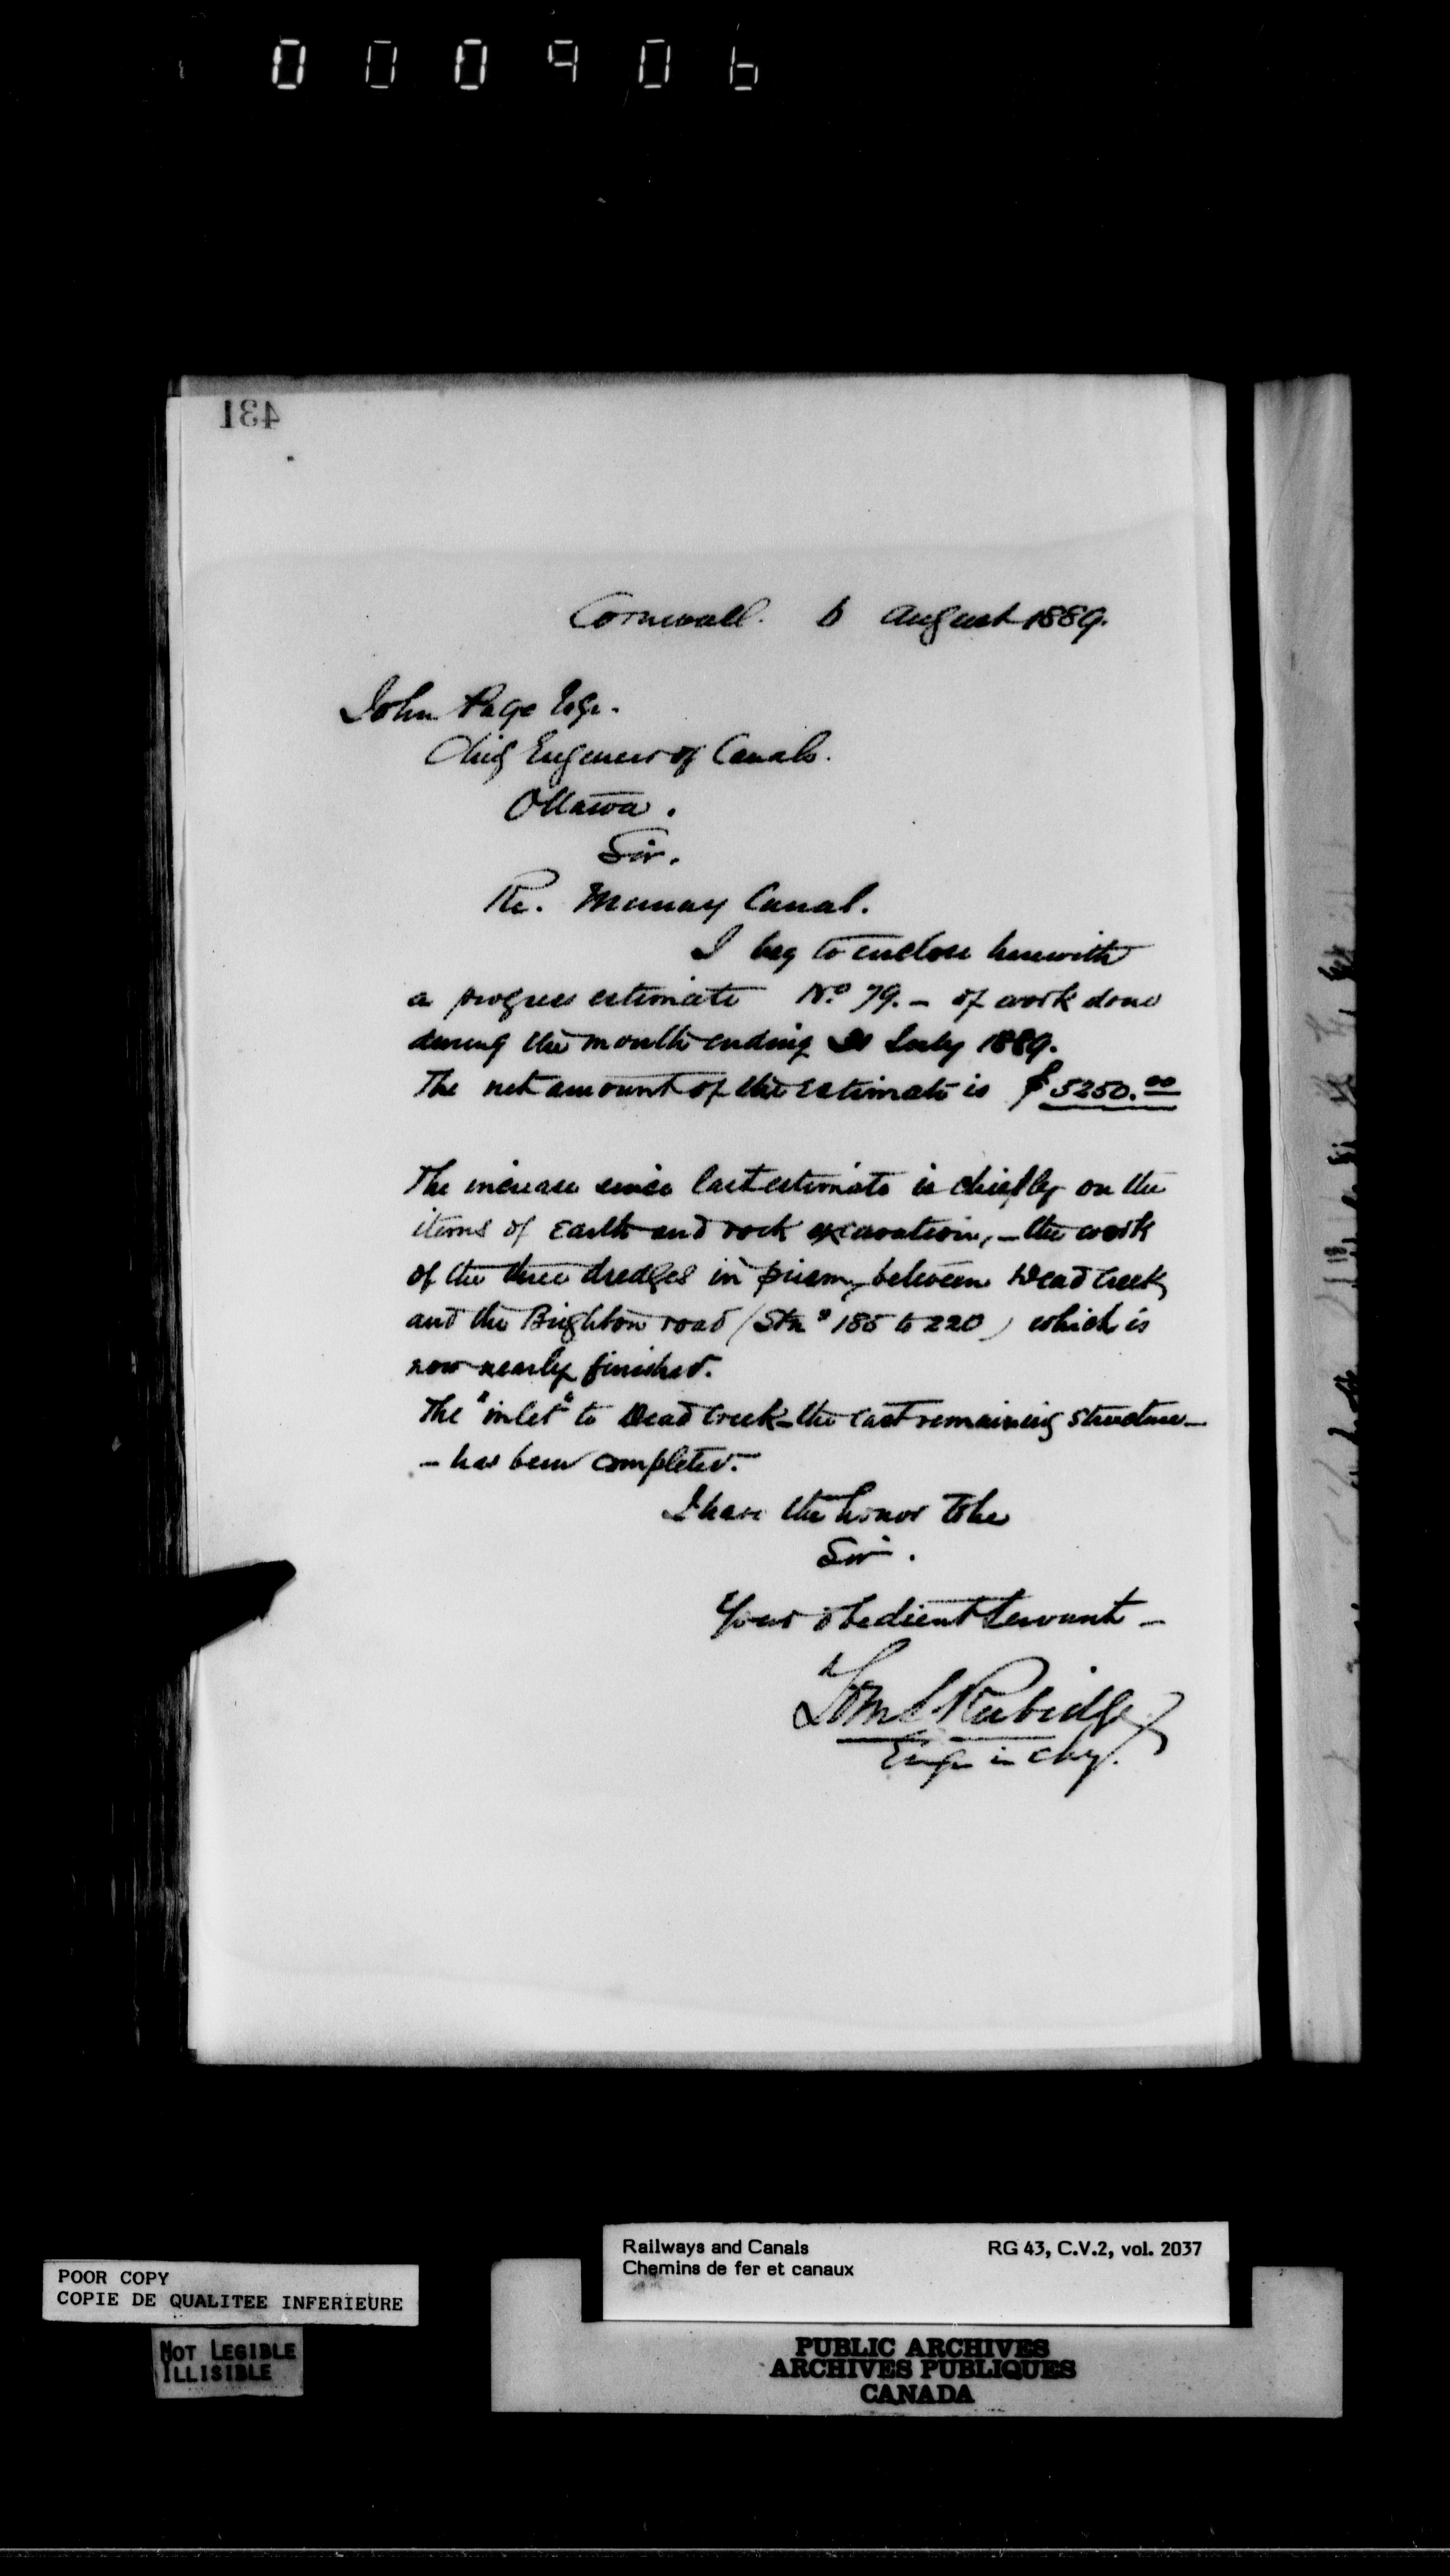 000906
431
Cornwall. 6 August 1889.
John Page Esqr.
Chief Engineer of Canals.
Ottawa.
Sir.
Re. Murray Canal.
I beg to enclose herewith
a progress estimate No 79. - of work done
during the month ending 31 July 1889.
The net amount of the estimate is $5250.00
The increase since last estimate is chiefly on the
items of Earth and rock excavation, - the work
of the three dredges in prism, between Dead Creek
and the Brighton road (Stns 185 to 220) which is
now nearly finished.
The "inlet" to Dead Creek - the last remaining structure -
- has been completed.
I have the honor to be
Sir.
Your obedient Servant -
Tom S Rubidge
Engr in Chg.
Railways and Canals RG 43, C.V.2, vol. 2037
Chemins de fer et canaux
POOR COPY
COPIE DE QUALITEE INFERIEURE
NOT LEGIBLE
ILLISIBLE
PUBLIC ARCHIVES
ARCHIVES PUBLIQUES
CANADA